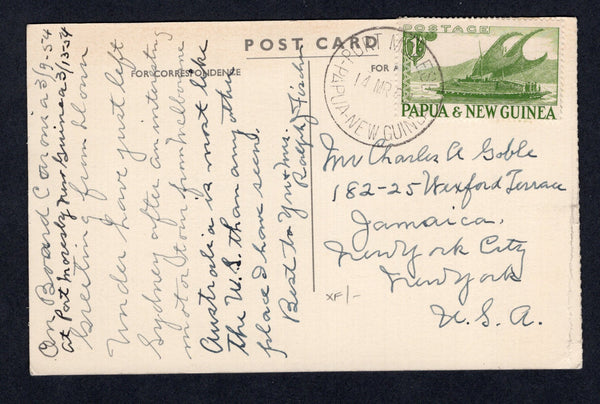 POST CARD
FOR CORRESPONDENCE
FOR A
POSTAGE
1/-
PAPUA & NEW GUINEA
PORT MORESBY
14 MR
PAPUA-NEW GUINEA
On Board Coronia 3/9-54
at Port Moresby New Guinea 3/13-54
Greeting from Down
Under Have just left
Sydney after an interesting
motor tour from Melbourne
Australia is most like
the U.S. than any other
place I have seen.
Best to You & Mrs.
Ralph J
Mr Charles A Goble
182-25 Wexford Terrace
Jamaica,
New York City
New York
U.S.A.
XF/-